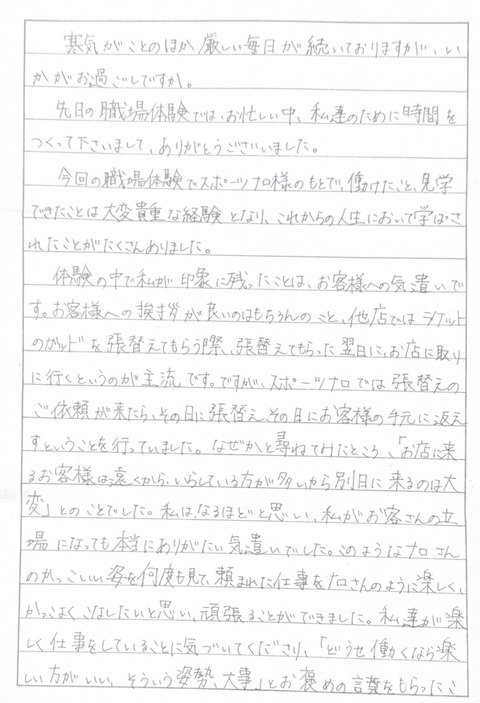 寒気がことのほか厳しい毎日が続いておりますが、い
かがお過ごしですか。
先日の職場体験では、お忙しい中、私達のために時間を
つくって下さいまして、ありがとうございました。
今回の職場体験でスポーツナロ様のもとで、働けたこと、見学
できたことは大変貴重な経験となり、これからの人生において学ばさ
れたことがたくさんありました。
体験の中で私が印象に残ったことは、お客様への気遣いで
す。お客様への挨拶が良いのはもちろんのこと、他店ではラケット
のガットを張替えてもらう際、張替えてもらった翌日に、お店に取り
に行くというのが主流です。ですが、スポーツナロでは張替えの
ご依頼が来たら、その日に張替え、その日にお客様の手元に返え
すということを行っていました。なぜかと尋ねてみたところ、「お店に来
るお客様は遠くから、いらしている方が多いから別日に来るのは大
変」とのことでした。私は、なるほどと思い、私がお客さんの立
場になっても本当にありがたい気遣いでした。このようなナロさん
のかっこいい姿を何度も見て、頼まれた仕事をナロさんのように楽しく、
かっこよく、こなしたいと思い、頑張ることができました。私達が楽
しく仕事をしていることに気づいてくださり、「どうせ働くなら楽
しい方がいい、そういう姿勢、大事」とお褒めの言葉をもらったこ